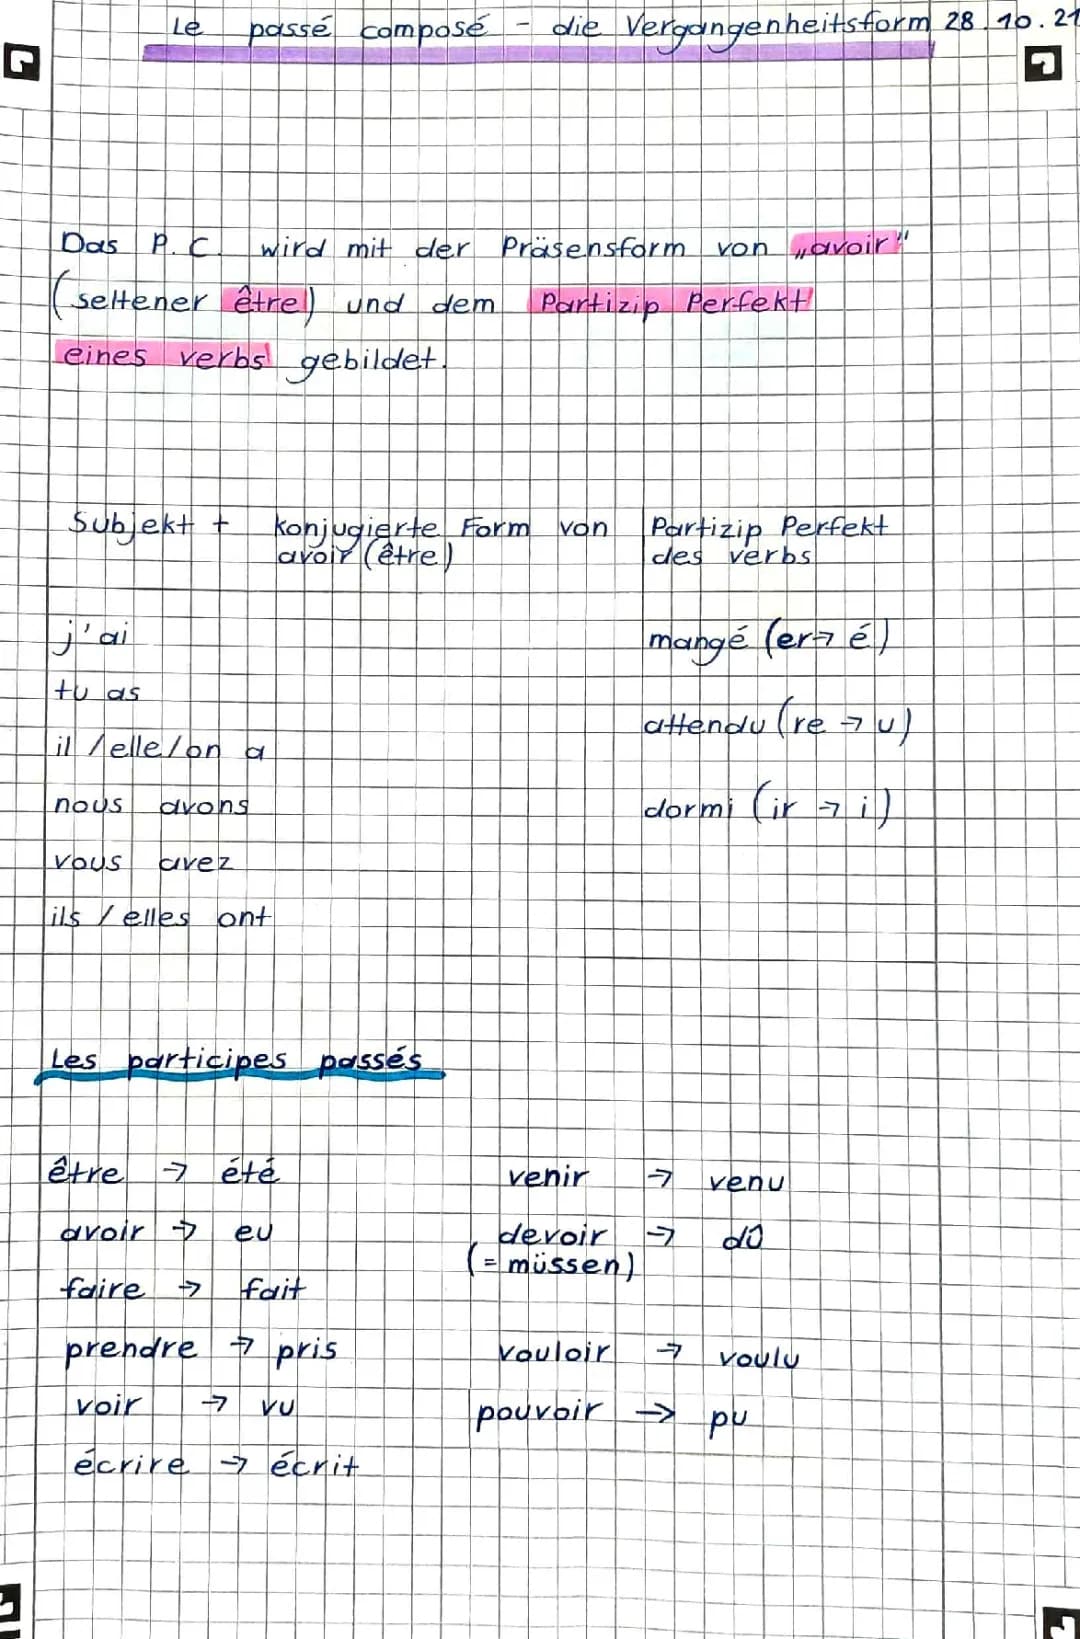 Le passé composé - die Vergangenheitsform 28.10.21
Das P.C. wird mit der Präsensform von „avoir"
(seltener être) und dem Partizip Perfekt
eines verbs gebildet.
Subjekt + konjugierte Form von Partizip Perfekt
avoir (être) des verbs
j'ai mangé (er→ é)
tu as
attendu (re → u)
il /elle/on a
nous avons dormi (ir → i)
vous avez
ils / elles ont
Les participes passés
être → été venir → venu
avoir → eu devoir → dû
(= müssen)
faire → fait
prendre → pris vouloir → voulu
voir → vu pouvoir → pu
écrire → écrit